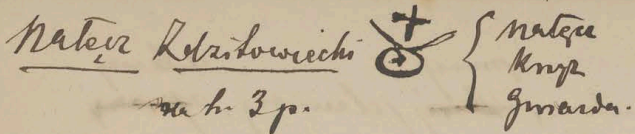 Nałęcz Zdziłowiecki { Nałęcz
Krzyż
Gwiazda.
na h. 3 p.